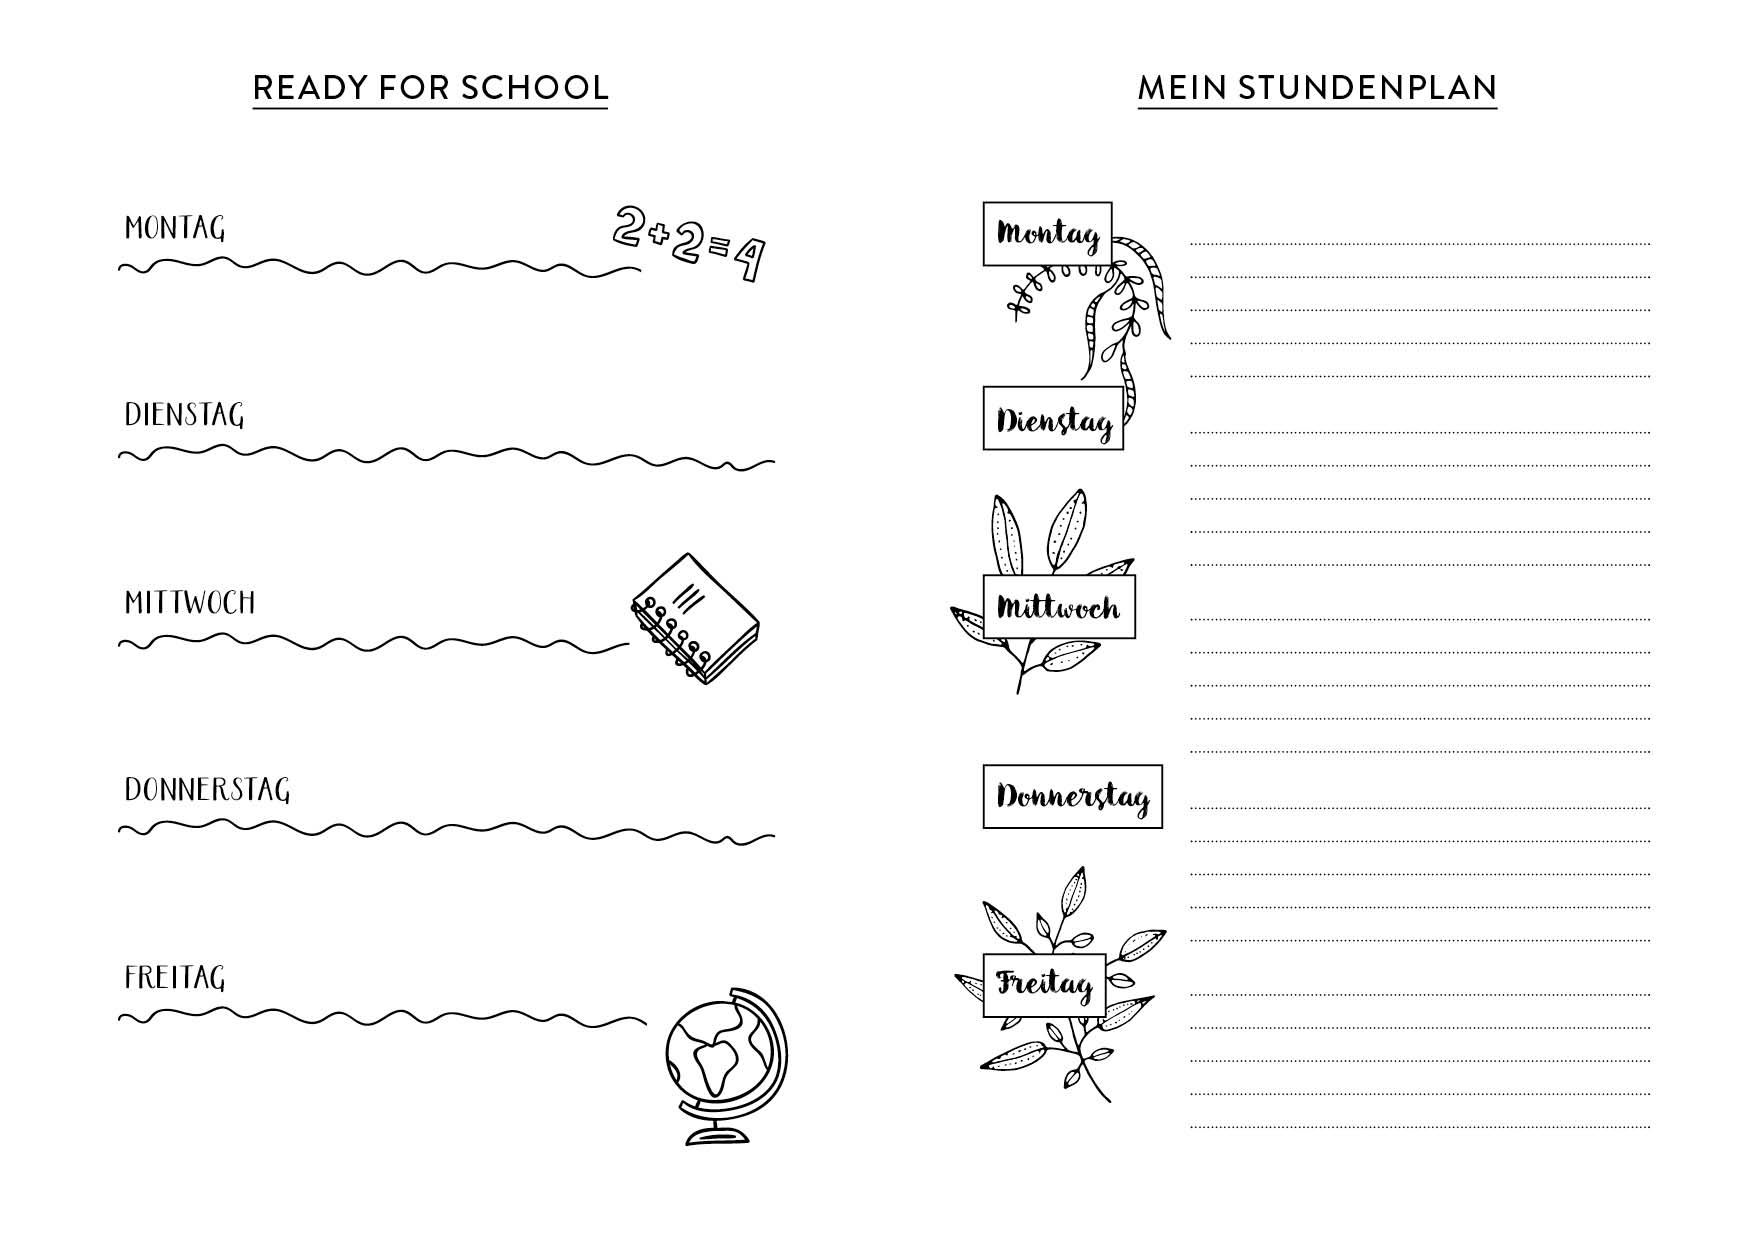 READY FOR SCHOOL
MONTAG
2+2=4
DIENSTAG
MITTWOCH
DONNERSTAG
FREITAG
MEIN STUNDENPLAN
Montag
Dienstag
Mittwoch
Donnerstag
Freitag